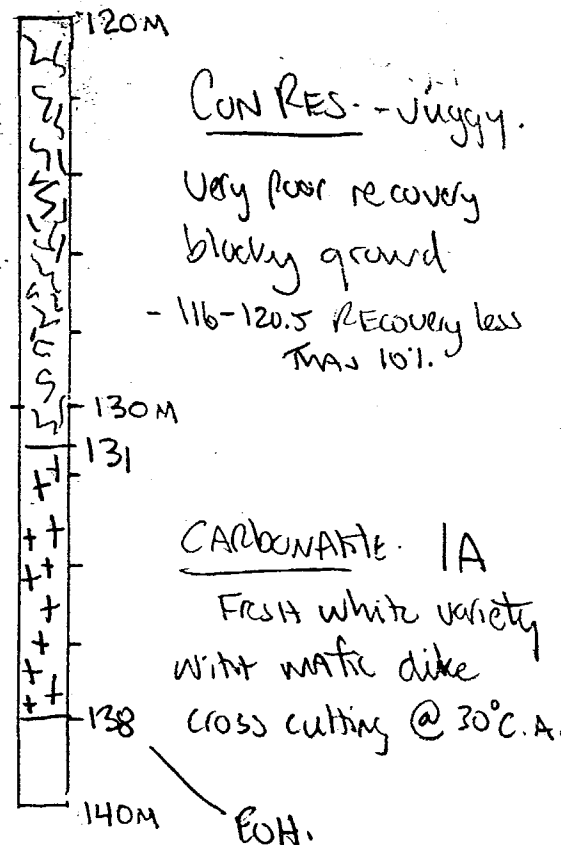 120M
CON RES. - Vuggy.
Very Poor recovery
blocky ground
- 116-120.5 RECovery less
THAN 10%.
130M
131
CARbONAtite. 1A
FResH white variety
WitH mAfic dike
138 cross cutting @ 30° C.A.
140M
EOH.